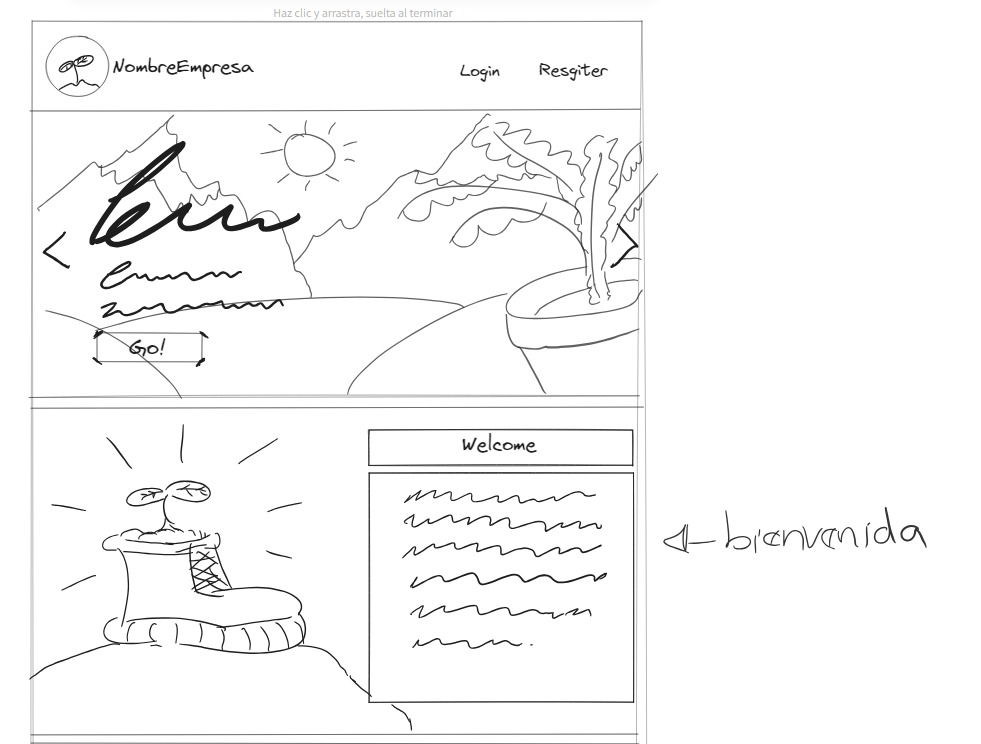 Haz clic y arrastra, suelta al terminar
NombreEmpresa
Login
Resgiter
Go!
Welcome
bienvenida